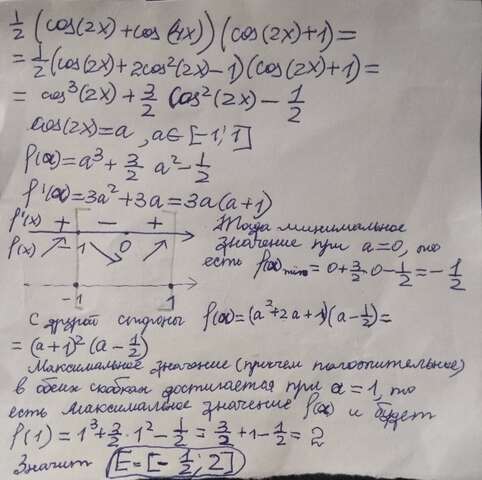 1/2 (cos(2x)+cos(4x))(cos(2x)+1)=
=1/2(cos(2x)+2cos²(2x)-1)(cos(2x)+1)=
= cos³(2x)+3/2 cos²(2x)-1/2
cos(2x)=a, a∈[-1;1]
f(a)=a³+3/2 a²-1/2
f'(a)=3a²+3a=3a(a+1)
f'(x) + - +
f(x) -1 0
-1 1
Тогда минимальное
значение при a=0, то
есть f(a)min=0+3/2·0-1/2=-1/2
С другой стороны f(a)=(a²+2a+1)(a-1/2)=
=(a+1)²(a-1/2)
Максимальное значение (причем положительное)
в обеих скобках достигается при a=1, то
есть максимальное значение f(a) и будет
f(1)=1³+3/2·1²-1/2=3/2+1-1/2=2
Значит E=[-1/2;2]